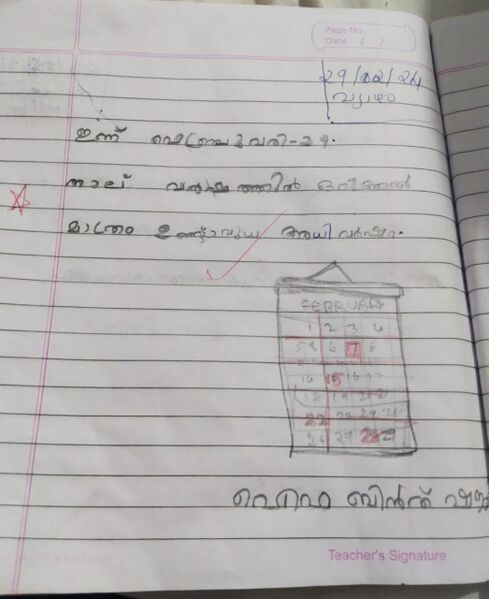 Page No.
Date / /
29/02/24
വ്യാഴം
ഇന്ന് ഫെബ്രുവരി-29.
നാല് വർഷത്തിൽ ഒരിക്കൽ
മാത്രം ഉണ്ടാവുന്ന അധിവർഷം.
FEBRUARY
1 2 3 4
6 7 8
15 16 17
18 19
22
27 28 29
ബിൻത്
Teacher's Signature